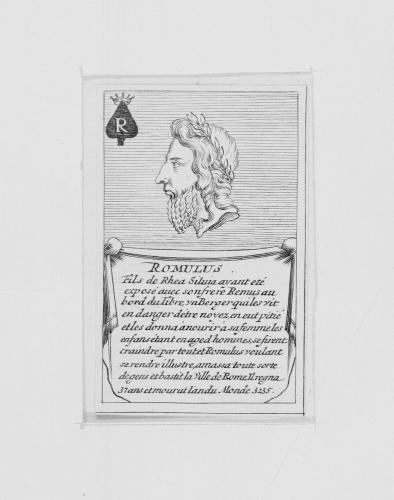 R
ROMULUS
Fils de Rhea Siluia ayant eté
exposé auec son frere Remus au
bord du Tibre, vn Berger qui les vit
en danger dètre noyez, en eut pitié
et les donna anourir à sa femme les
enfans étant en aged hommes, se firent
craindre par tout et Romulus voulant
se rendre illustre, amassa toute sorte
de gens et bastit la Ville de Rome, Il regna
37 ans et mourut Lan du Monde 3235.